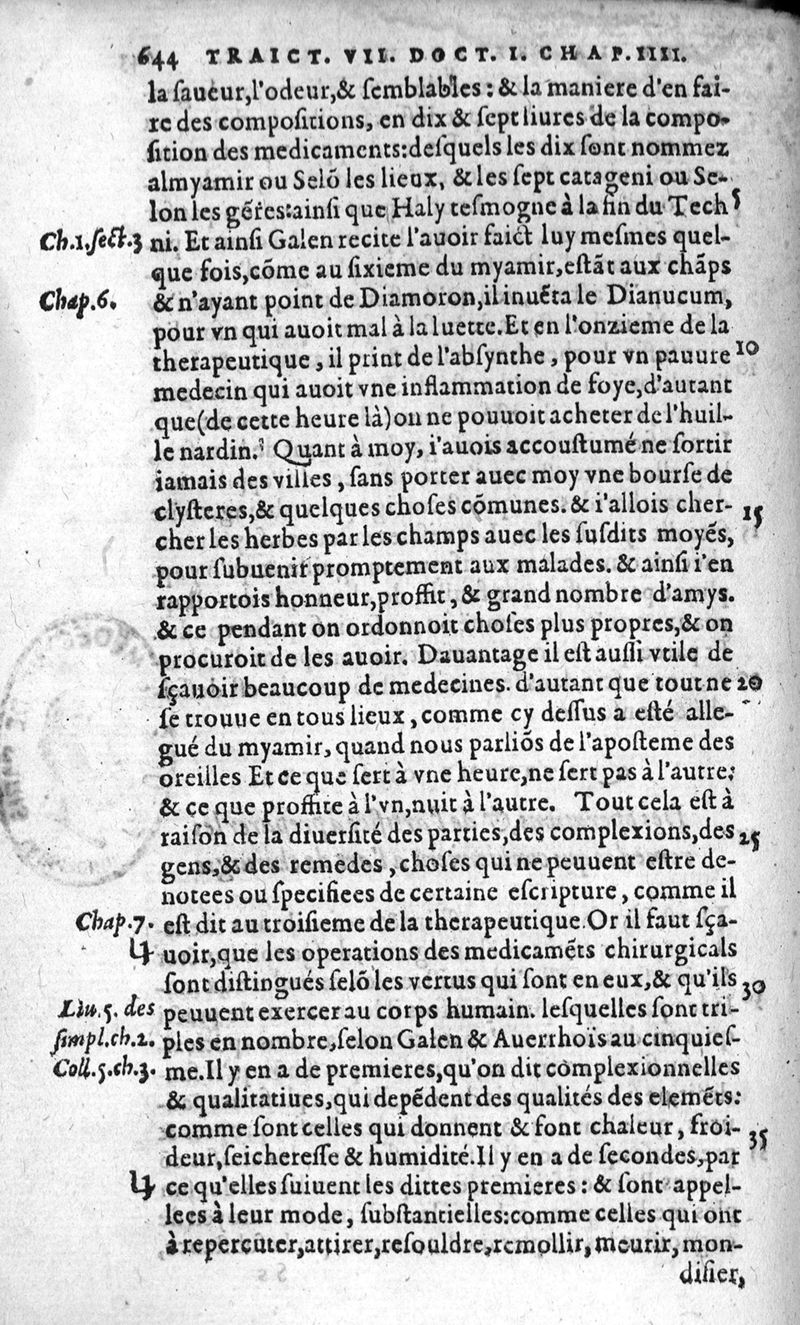 644 TRAICT. VII. DOCT. I. CHAP. IIII.
la ſaueur, l'odeur, & ſemblables: & la maniere d'en fai-
re des compoſitions, en dix & ſept liures de la compo-
ſition des medicaments: deſquels les dix ſont nommez
almyamir ou Selõ les lieux, & les ſept catageni ou Se- 5
lon les gẽres: ainſi que Haly teſmogne à la fin du Tech
Ch.1.ſect.3 ni. Et ainſi Galen recite l'auoir faict luy meſmes quel-
que fois, cõme au ſixieme du myamir, eſtãt aux chãps
Chap.6. & n'ayant point de Diamoron, il inuẽta le Dianucum,
pour vn qui auoit mal à la luette. Et en l'onzieme de la
therapeutique, il print de l'abſynthe, pour vn pauure 10
medecin qui auoit vne inflammation de foye, d'autant
que (de cette heure là) on ne pouuoit acheter de l'huil-
le nardin. Quant à moy, i'auois accouſtumé ne ſortir
iamais des villes, ſans porter auec moy vne bourſe de
clyſteres, & quelques choſes cõmunes. & i'allois cher- 15
cher les herbes par les champs auec les ſuſdits moyẽs,
pour ſubuenir promptement aux malades. & ainſi i'en
rapportois honneur, proffit, & grand nombre d'amys.
& ce pendant on ordonnoit choſes plus propres, & on
procuroit de les auoir. Dauantage il eſt auſſi vtile de
ſçauoir beaucoup de medecines. d'autant que tout ne 20
ſe trouue en tous lieux, comme cy deſſus a eſté alle-
gué du myamir, quand nous parliõs de l'apoſteme des
oreilles Et ce que ſert à vne heure, ne ſert pas à l'autre:
& ce que proffite à l'vn, nuit à l'autre. Tout cela eſt à
raiſon de la diuerſité des parties, des complexions, des 25
gens, & des remedes, choſes qui ne peuuent eſtre de-
notees ou ſpecifiees de certaine eſcripture, comme il
Chap.7. eſt dit au troiſieme de la therapeutique. Or il faut ſça-
uoir, que les operations des medicamẽts chirurgicals
ſont diſtingués ſelõ les vertus qui ſont en eux, & qu'ils 30
Liu.5. des peuuent exercer au corps humain. leſquelles ſont tri-
ſimpl.ch.2. ples en nombre, ſelon Galen & Auerrhoïs au cinquieſ-
Coll.5.ch.3. me. Il y en a de premieres, qu'on dit complexionnelles
& qualitatiues, qui depẽdent des qualités des elemẽts:
comme ſont celles qui donnent & font chaleur, froi- 35
deur, ſeichereſſe & humidité. Il y en a de ſecondes, par
ce qu'elles ſuiuent les dittes premieres: & ſont appel-
lees à leur mode, ſubſtantielles: comme celles qui ont
à repercuter, attirer, reſouldre, remollir, meurir, mon-
difier,